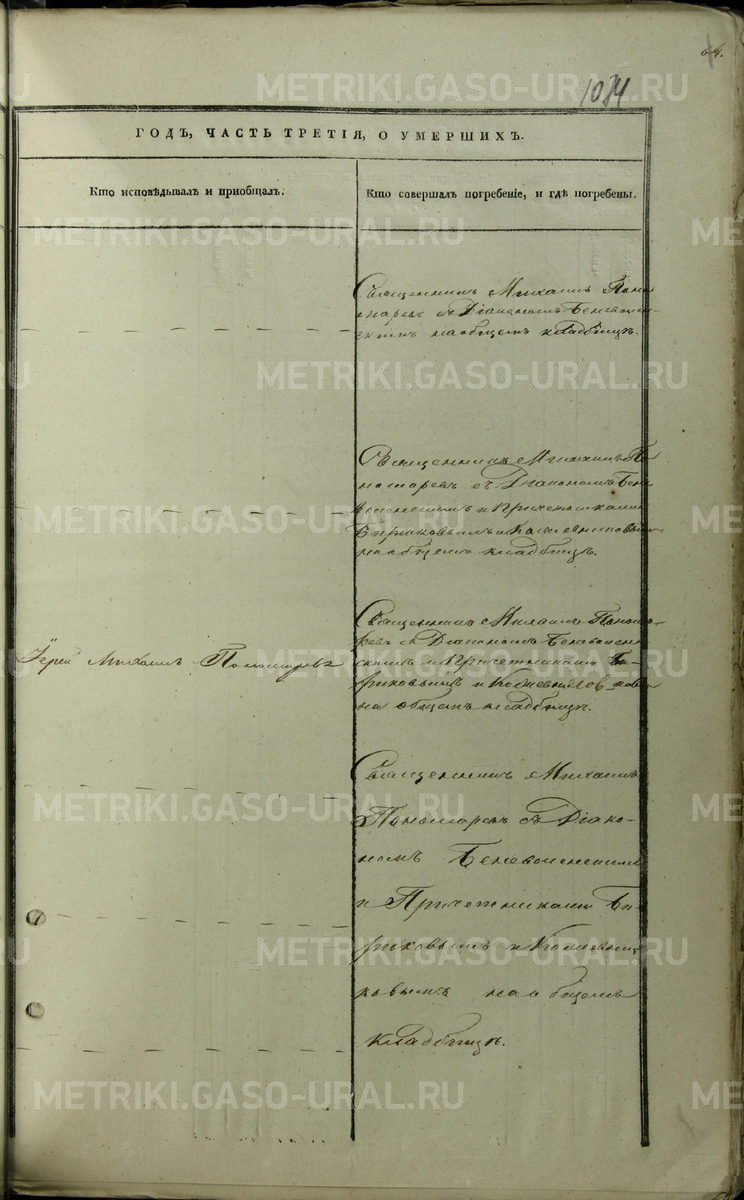 64.
1034
ГОДЪ, ЧАСТЬ ТРЕТІЯ, О УМЕРШИХЪ.
Кто исповѣдывалъ и пріобщалъ.
Кто совершалъ погребеніе, и гдѣ погребены.
Священникъ Михаилъ Поно
маревъ съ Діакономъ Беневолен
скимъ на общемъ кладбищѣ.
Священникъ Михаилъ По
номаревъ съ Діакономъ Бене
воленскимъ и Причетниками
Бириковымъ и Кожевниковымъ
на общемъ кладбищѣ.
Іерей Михаилъ Пономаревъ
Священникъ Михаилъ Понома-
ревъ съ Діакономъ Беневолен
скимъ и Причетниками Би-
риковымъ и
на общемъ кладбищѣ.
Священникъ Михаилъ
Пономаревъ съ Діако-
номъ Беневоленскимъ
и Причетниками Би-
риковымъ и Кожевни-
ковымъ на общемъ
кладбищѣ.
METRIKI.GASO-URAL.RU